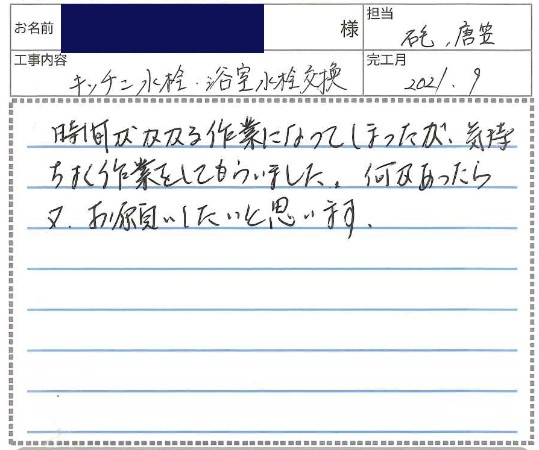 お名前 様 担当 砲、唐笠
工事内容 キッチン水栓・浴室水栓交換 完工月 2021.9
時間がかかる作業になってしまったが、気持
ちよく作業をしてもらいました。何かあったら
又、お願いしたいと思います。